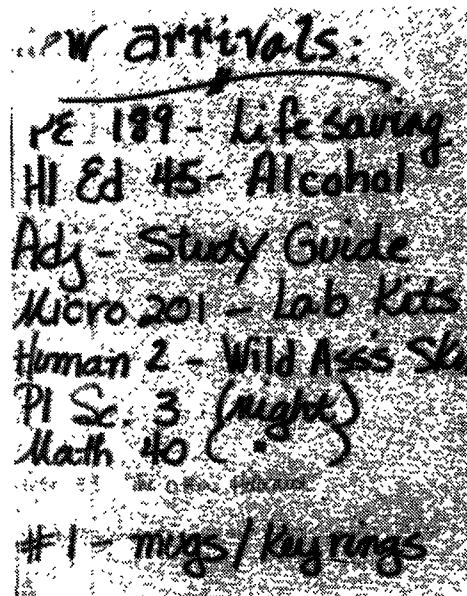 arrivals:
PE 189 - Lifesaving
Hl Ed 45 - Alcohol
Adj - Study Guide
Micro 201 - Lab Kits
Human 2 - Wild Ass's
Pl Sc. 3 (night)
Math 40 ( " )
#1 - mugs/Key rings